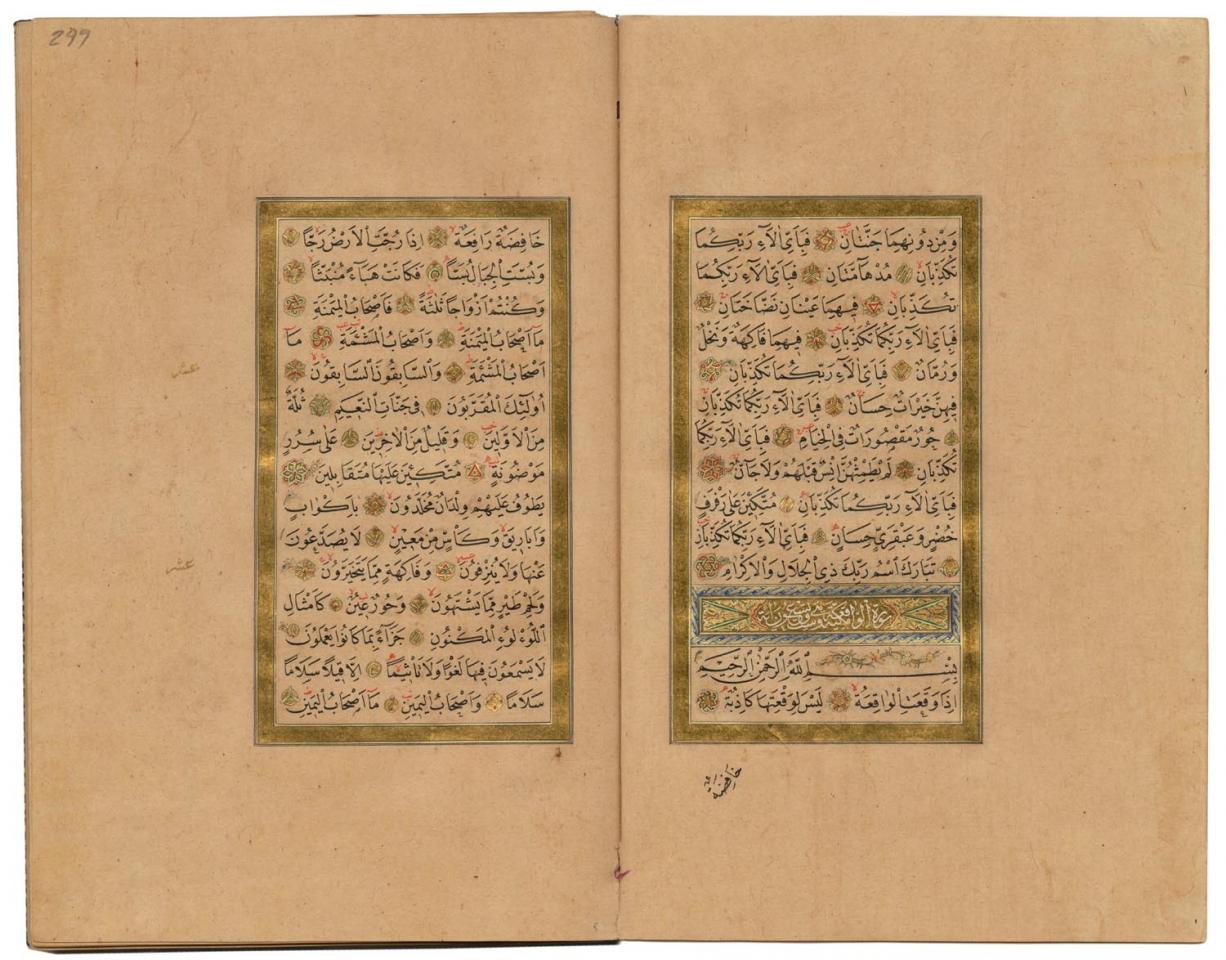 وَمِنْ دُونِهِمَا جَنَّتَانِ فَبِاَيِّ اٰلَاءِ رَبِّكُمَا
تُكَذِّبَانِ مُدْهَامَّتَانِ فَبِاَيِّ اٰلَاءِ رَبِّكُمَا
تُكَذِّبَانِ فِيهِمَا عَيْنَانِ نَضَّاخَتَانِ
فَبِاَيِّ اٰلَاءِ رَبِّكُمَا تُكَذِّبَانِ فِيهِمَا فَاكِهَةٌ وَنَخْلٌ
وَرُمَّانٌ فَبِاَيِّ اٰلَاءِ رَبِّكُمَا تُكَذِّبَانِ
فِيهِنَّ خَيْرَاتٌ حِسَانٌ فَبِاَيِّ اٰلَاءِ رَبِّكُمَا تُكَذِّبَانِ
حُورٌ مَقْصُورَاتٌ فِي الْخِيَامِ فَبِاَيِّ اٰلَاءِ رَبِّكُمَا
تُكَذِّبَانِ لَمْ يَطْمِثْهُنَّ اِنْسٌ قَبْلَهُمْ وَلَا جَانٌّ
فَبِاَيِّ اٰلَاءِ رَبِّكُمَا تُكَذِّبَانِ مُتَّكِئِينَ عَلٰى رَفْرَفٍ
خُضْرٍ وَعَبْقَرِيٍّ حِسَانٍ فَبِاَيِّ اٰلَاءِ رَبِّكُمَا تُكَذِّبَانِ
تَبَارَكَ اسْمُ رَبِّكَ ذِي الْجَلَالِ وَالْاِكْرَامِ
بِسْمِ اللّٰهِ الرَّحْمٰنِ الرَّحِيمِ
اِذَا وَقَعَتِ الْوَاقِعَةُ لَيْسَ لِوَقْعَتِهَا كَاذِبَةٌ
خافضة
299
خَافِضَةٌ رَافِعَةٌ اِذَا رُجَّتِ الْاَرْضُ رَجًّا
وَبُسَّتِ الْجِبَالُ بَسًّا فَكَانَتْ هَبَاءً مُنْبَثًّا
وَكُنْتُمْ اَزْوَاجًا ثَلٰثَةً فَاَصْحَابُ الْمَيْمَنَةِ
مَا اَصْحَابُ الْمَيْمَنَةِ وَاَصْحَابُ الْمَشْئَمَةِ مَا
اَصْحَابُ الْمَشْئَمَةِ وَالسَّابِقُونَ السَّابِقُونَ
اُولٰئِكَ الْمُقَرَّبُونَ فِي جَنَّاتِ النَّعِيمِ ثُلَّةٌ
مِنَ الْاَوَّلِينَ وَقَلِيلٌ مِنَ الْاٰخِرِينَ عَلٰى سُرُرٍ
مَوْضُونَةٍ مُتَّكِئِينَ عَلَيْهَا مُتَقَابِلِينَ
يَطُوفُ عَلَيْهِمْ وِلْدَانٌ مُخَلَّدُونَ بِاَكْوَابٍ
وَاَبَارِيقَ وَكَاْسٍ مِنْ مَعِينٍ لَا يُصَدَّعُونَ
عَنْهَا وَلَا يُنْزِفُونَ وَفَاكِهَةٍ مِمَّا يَتَخَيَّرُونَ
وَلَحْمِ طَيْرٍ مِمَّا يَشْتَهُونَ وَحُورٌ عِينٌ كَاَمْثَالِ
اللُّؤْلُوءِ الْمَكْنُونِ جَزَاءً بِمَا كَانُوا يَعْمَلُونَ
لَا يَسْمَعُونَ فِيهَا لَغْوًا وَلَا تَاْثِيمًا اِلَّا قِيلًا سَلَامًا
سَلَامًا وَاَصْحَابُ الْيَمِينِ مَا اَصْحَابُ الْيَمِينِ